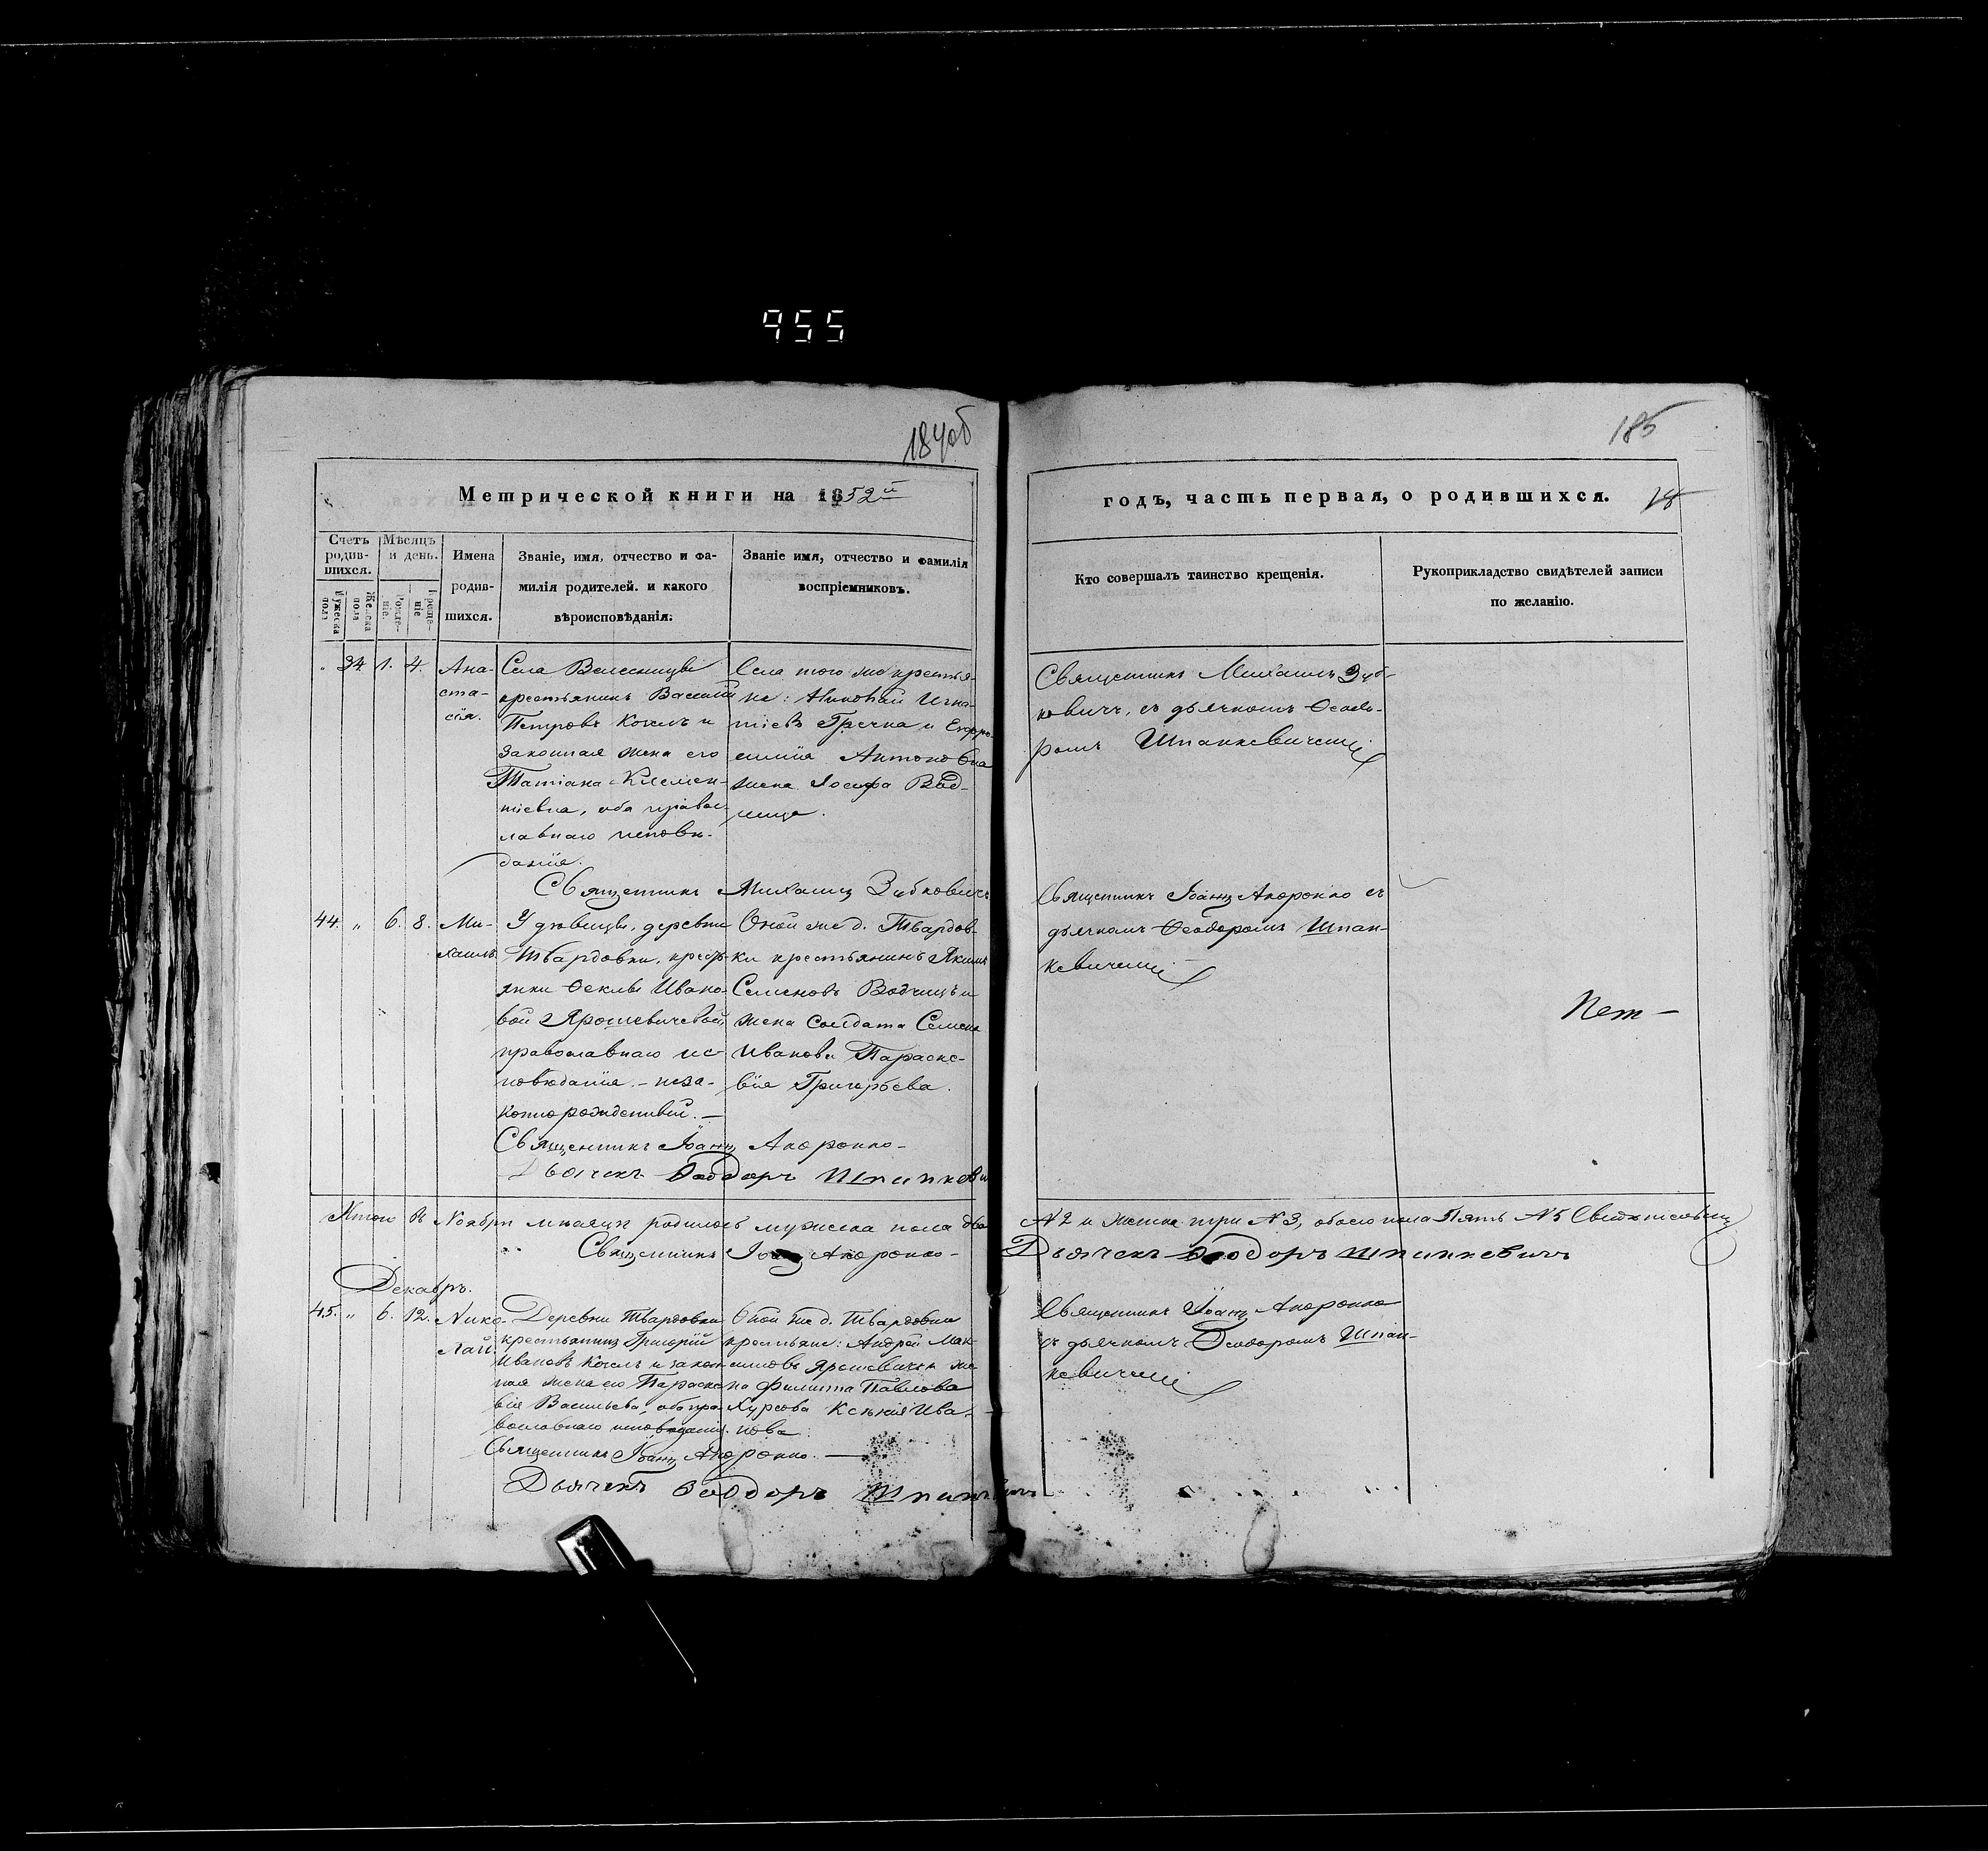 955
184об
185
Метрической книги на 1852й
годъ, часть первая, о родившихся.
18
Счетъ родив-шихся.
Мужеска пола
Женска пола
Мѣсяцъ и день.
Рожде-ніе.
Креще-ніе
Имена
родив-
шихся.
Званіе, имя, отчество и фа-
милія родителей. и какого
вѣроисповѣданія.
Званіе имя, отчество и фамилія
воспріемниковъ.
Кто совершалъ таинство крещенія.
Рукоприкладство свидѣтелей записи
по желанію.
„ 34 1. 4.
Ана-
ста-
сія.
Села Велесницы
крестьянинъ Василій
Петровъ Козелъ и
законная жена его
Татіана Клемен-
тіевна, оба правос-
лавнаго исповѣ-
данія.
Села того же крестья-
не: Николай Игна-
тіевъ Гречка и Евфро-
синія Антонова
жена Іосифа
Священникъ Михаилъ Зубковичъ
Священникъ Михаилъ Зуб-
ковичъ, съ дьячкомъ Ѳеодо-
ромъ Шпанкевичемъ
44. „ 6. 8.
Ми-
хаилъ
У дѣвицы, деревни
Твардовки, крестья-
янки Ѳеклы Ивано-
вой Ярошевичевой
православнаго ис-
повѣданія. – неза-
коннорожденный. –
Оной же д. Твардов-
ки крестьянинъ Якимъ
Семеновъ Водчицъ и
жена солдата Семена
Иванова Параске-
вія Григорьева.
Священникъ Іоаннъ Андронко –
Дьячекъ Ѳеодоръ Шпанкеви
Священникъ Іоаннъ Андронко съ
дьячкомъ Ѳеодоромъ Шпан-
кевичемъ
Нет –
Итого въ Ноябрѣ мѣсяцѣ родилось мужеска пола два
№ 2 и женска три № 3, обоего пола Пять № 5
Священникъ Іоаннъ Андронко –
Дьячекъ Ѳеодоръ Шпанкевичъ
Декабрь.
45. „ 6. 12.
Нико-
лай.
Деревни Твардовки
крестьянинъ Григорій
Ивановъ Козелъ и закон-
ная жена его Параске-
вія Васильева, оба пра-
вославнаго исповѣданія.
Оной же д. Твардовки
крестьяне: Андрей Мак-
симовъ Ярошевичъ и же-
на Филиппа Павлова
Хурсова Ксенія Ива-
нова.
Священникъ Іоаннъ Андронко. –
Дьячекъ Ѳеодоръ Шпанкевичъ
Священникъ Іоаннъ Андронко
съ дьячкомъ Ѳеодоромъ Шпан-
кевичемъ